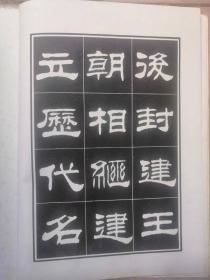 後封建王
朝相繼建
立歷代名